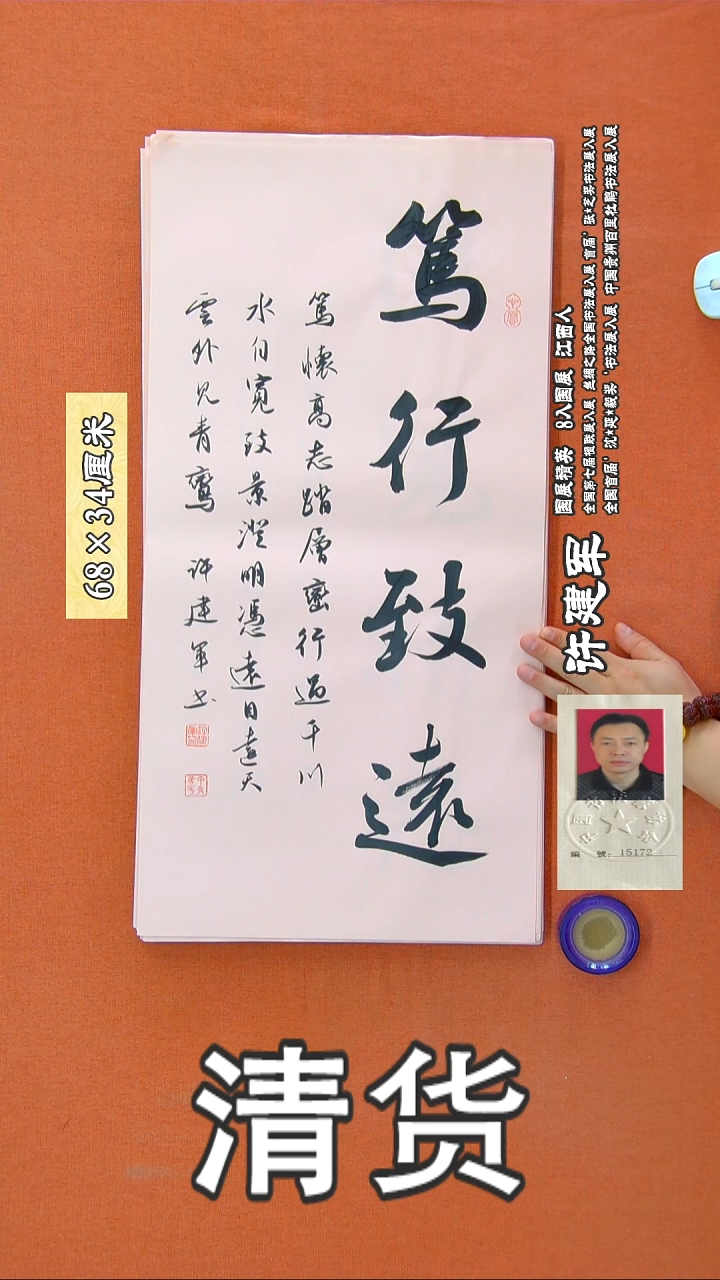 国展精英 8入国展 江西人
全国第七届楹联展入展 丝绸之路全国书法展入展 首届'张*芝奖书法展入展
全国首届'沈*延*毅奖'书法展入展 中国贵州百里杜鹃书法展入展
许建军
編 號:15172
篤行致遠
篤懷高志踏層巒行過千川
水自寬致景澄明憑遠目遠天
雲外見青鸞 許建軍书
68×34厘米
清货